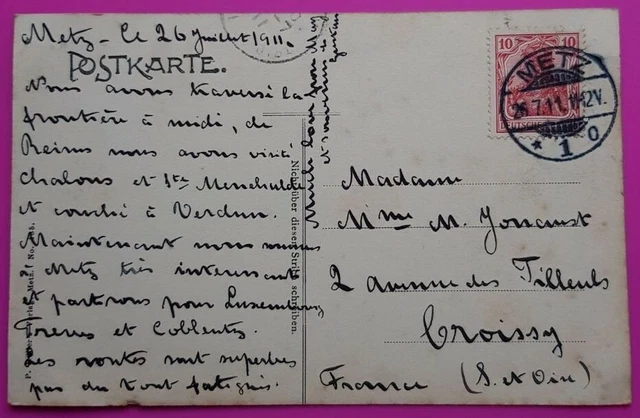 Metz - le 26 Juillet 1911.
POSTKARTE.
Nous avons traversé la
frontière à midi, de
Reims nous avons visité
Chalons et Ste Menehulde
et couché à Verdun.
Maintenant nous
Metz très interessant
et partons pour Luxembourg
Treves et Coblentz.
Les routes sont superbes
pas du tout fatigués.
Much love from
Nicht über diesen Strich schreiben.
Metz. No.
10 10
DEUTSCHES
METZ
26.7.11.11-12V.
* 1 o
Madame
Mme M.
2 avenue des Tilleuls
Croissy
France (S. et Oise)